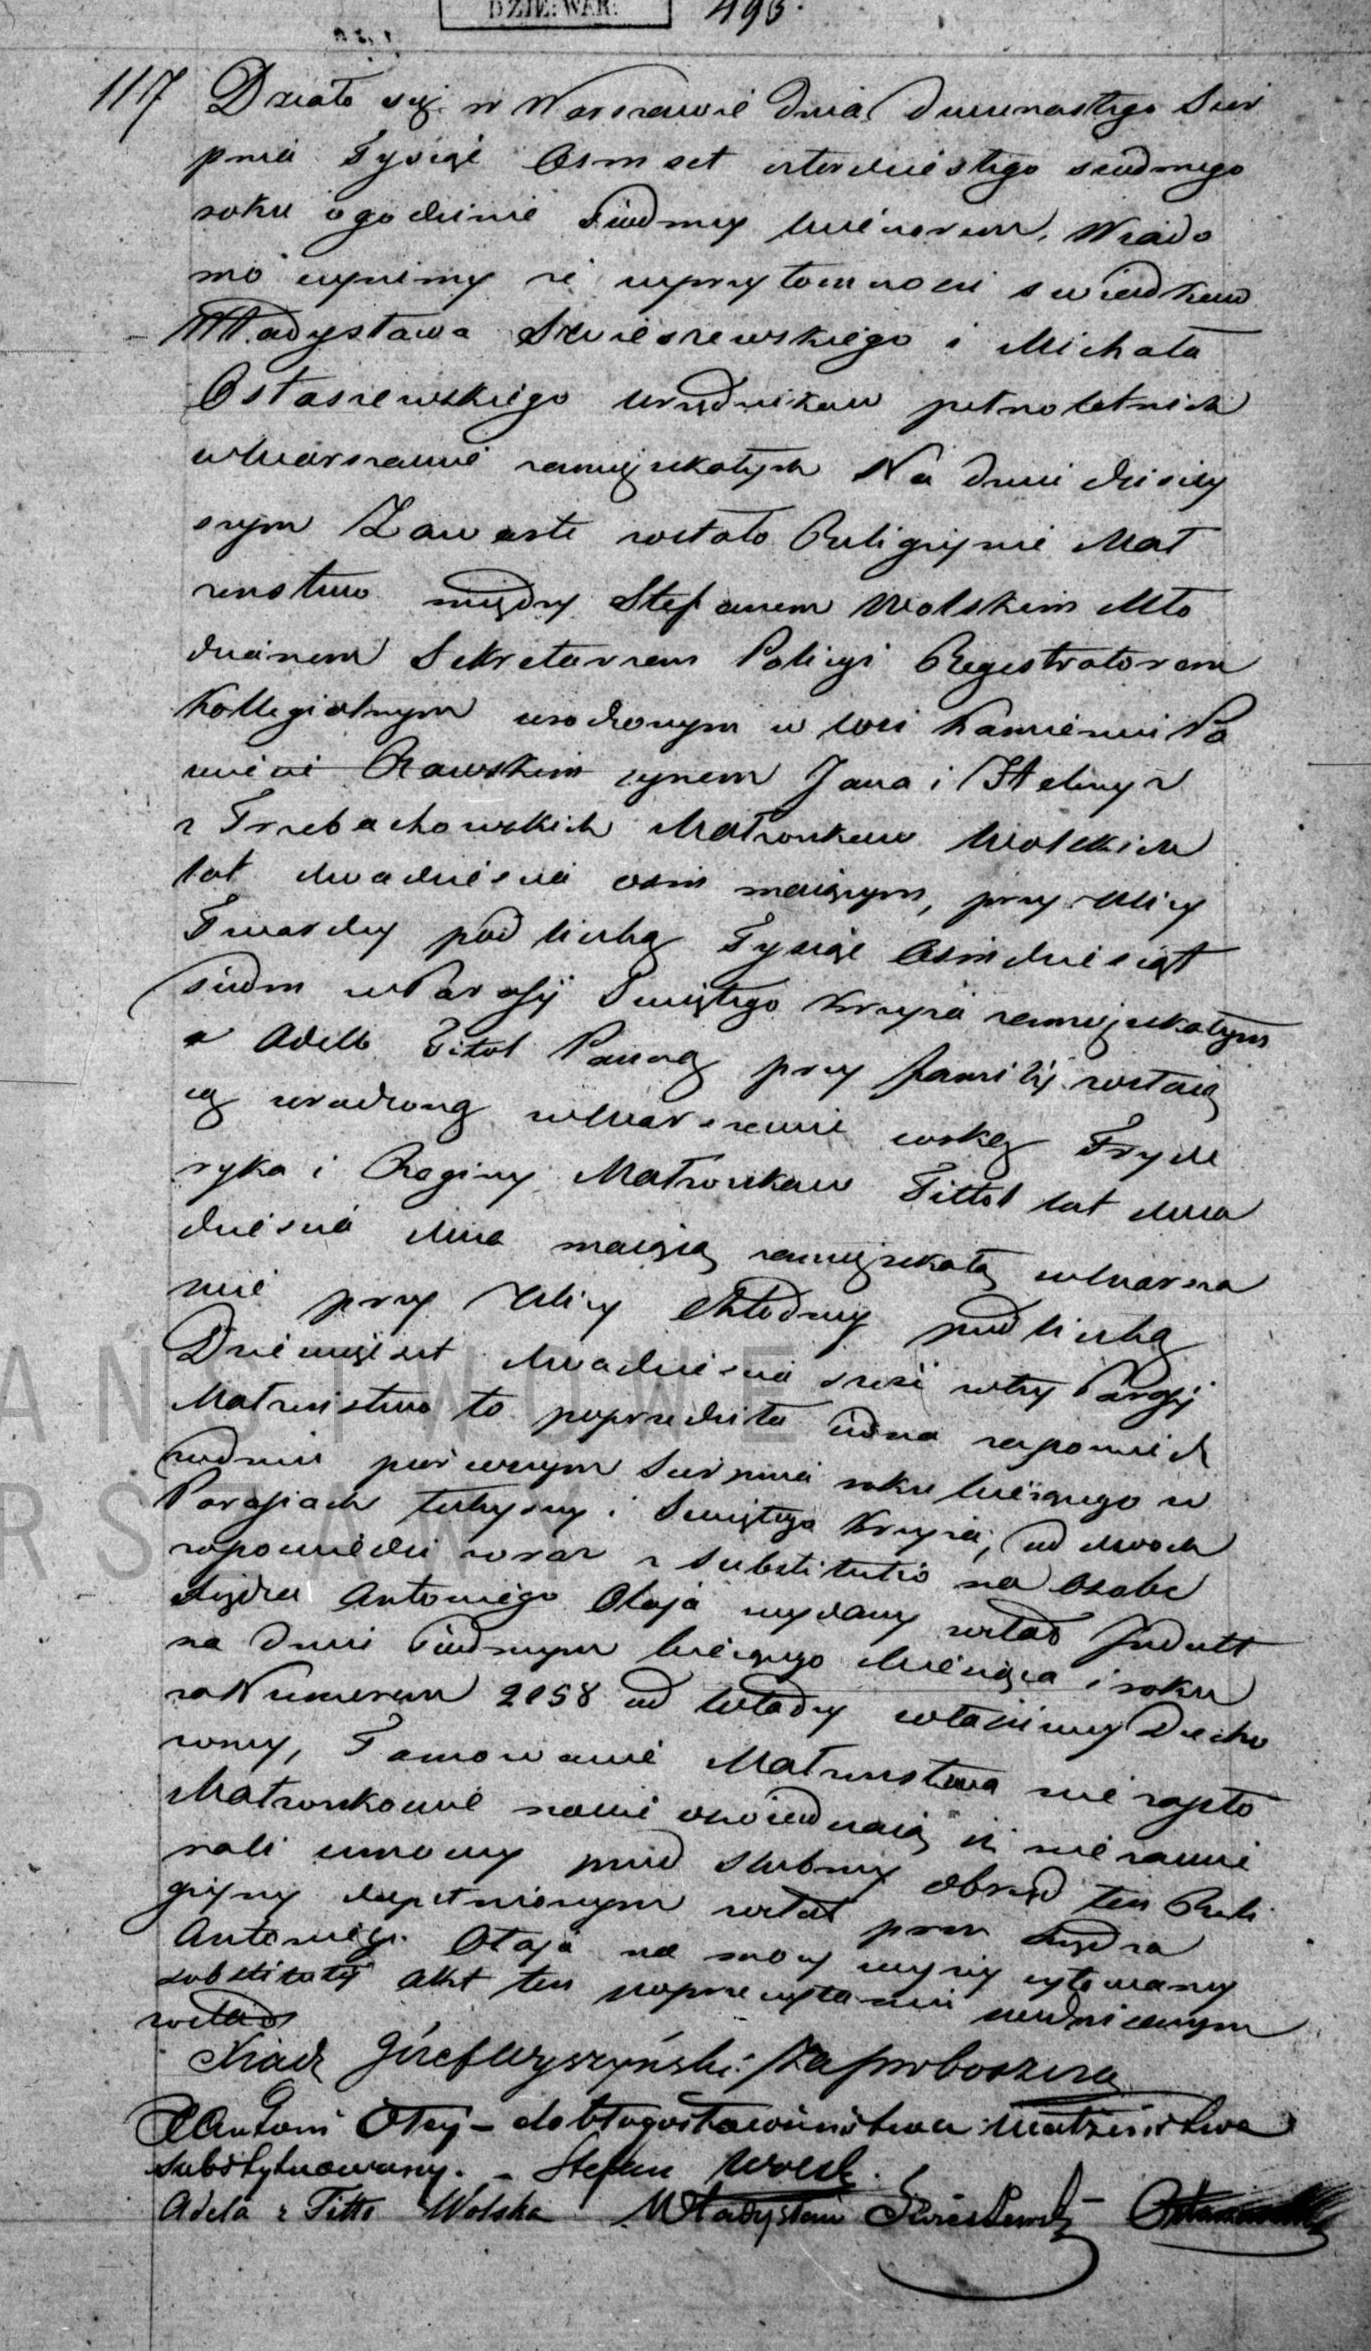 DZIE: WAR:
493.
117 Działo się w Warszawie dnia dwunastego Sier
pnia Tysiąc Osmset czterdziestego siudmego
roku o godzinie siudmey wieczorem, Wiado
mo czynimy że w przytomnosci swiadkow
Władysława Skwieszewskiego i Michała
Ostaszewskiego urzędnikow pełnoletnich
w Warszawie zamięszkałych Na dniu dzisiey
szym Zawarte zostało Religiyne Mał
zenstwo między Stefanem Wolskim Mło
dzianem Sekretarzem Policyi Registratorem
Kollegialnym urodzonym w wsi Kamienni Po
wiecie Rawskim synem Jana i Heleny z
z Trzebachowskich Małżonkow Wolskich
lat dwadziescia osm maiącym, przy Ulicy
Twardey pod liczbą Tysiąc Osmdziesiąt
siedm w Parafij Swiętego Krzyża zamięszkałym
a Adelą Tittel Panną przy familij zostaią
cą urodzoną w Warszawie corką Fryde
ryka i Reginy Małżonkow Tittel lat dwa
dziescia dwa maiącą zamięszkałą w Warsza
wie przy Ulicy Chłodney pod liczbą
Dziewięcset dwadziescia szesc w tey Parafij
Małżenstwo to poprzedziła iedna zapowiedz
w dniu pierwszym Sierpnia roku bieżącego w
Parafiach tuteyszey i Swiętego Krzyża, od dwoch
zapowiedzi wraz z substitutio na osobę
Xiędza Antoniego Otaja wydany został Indult
na dniu siudmym bieżącego Miesiąca i roku
za Numerem 2058 od Władzy własciwey Ducho
wney, Tamowanie Małżenstwa nie zaszło
Małżonkowie nowi oswiadczaią iż nie zawie
rali umowy przed slubney obrząd ten Reli
giyny dopełnionym został przez Xiędza
Antoniego Otaja na mocy wyżey cytowaney
substitutij Akt ten po przeczytaniu
został
Xiadz Józef Wyszyński: Za Proboszcza
X Antoni Otay – do błogosławieństwa małżeństwa
substytuowany. – Stefan Wolski
Adela z Tittl Wolska Władysław